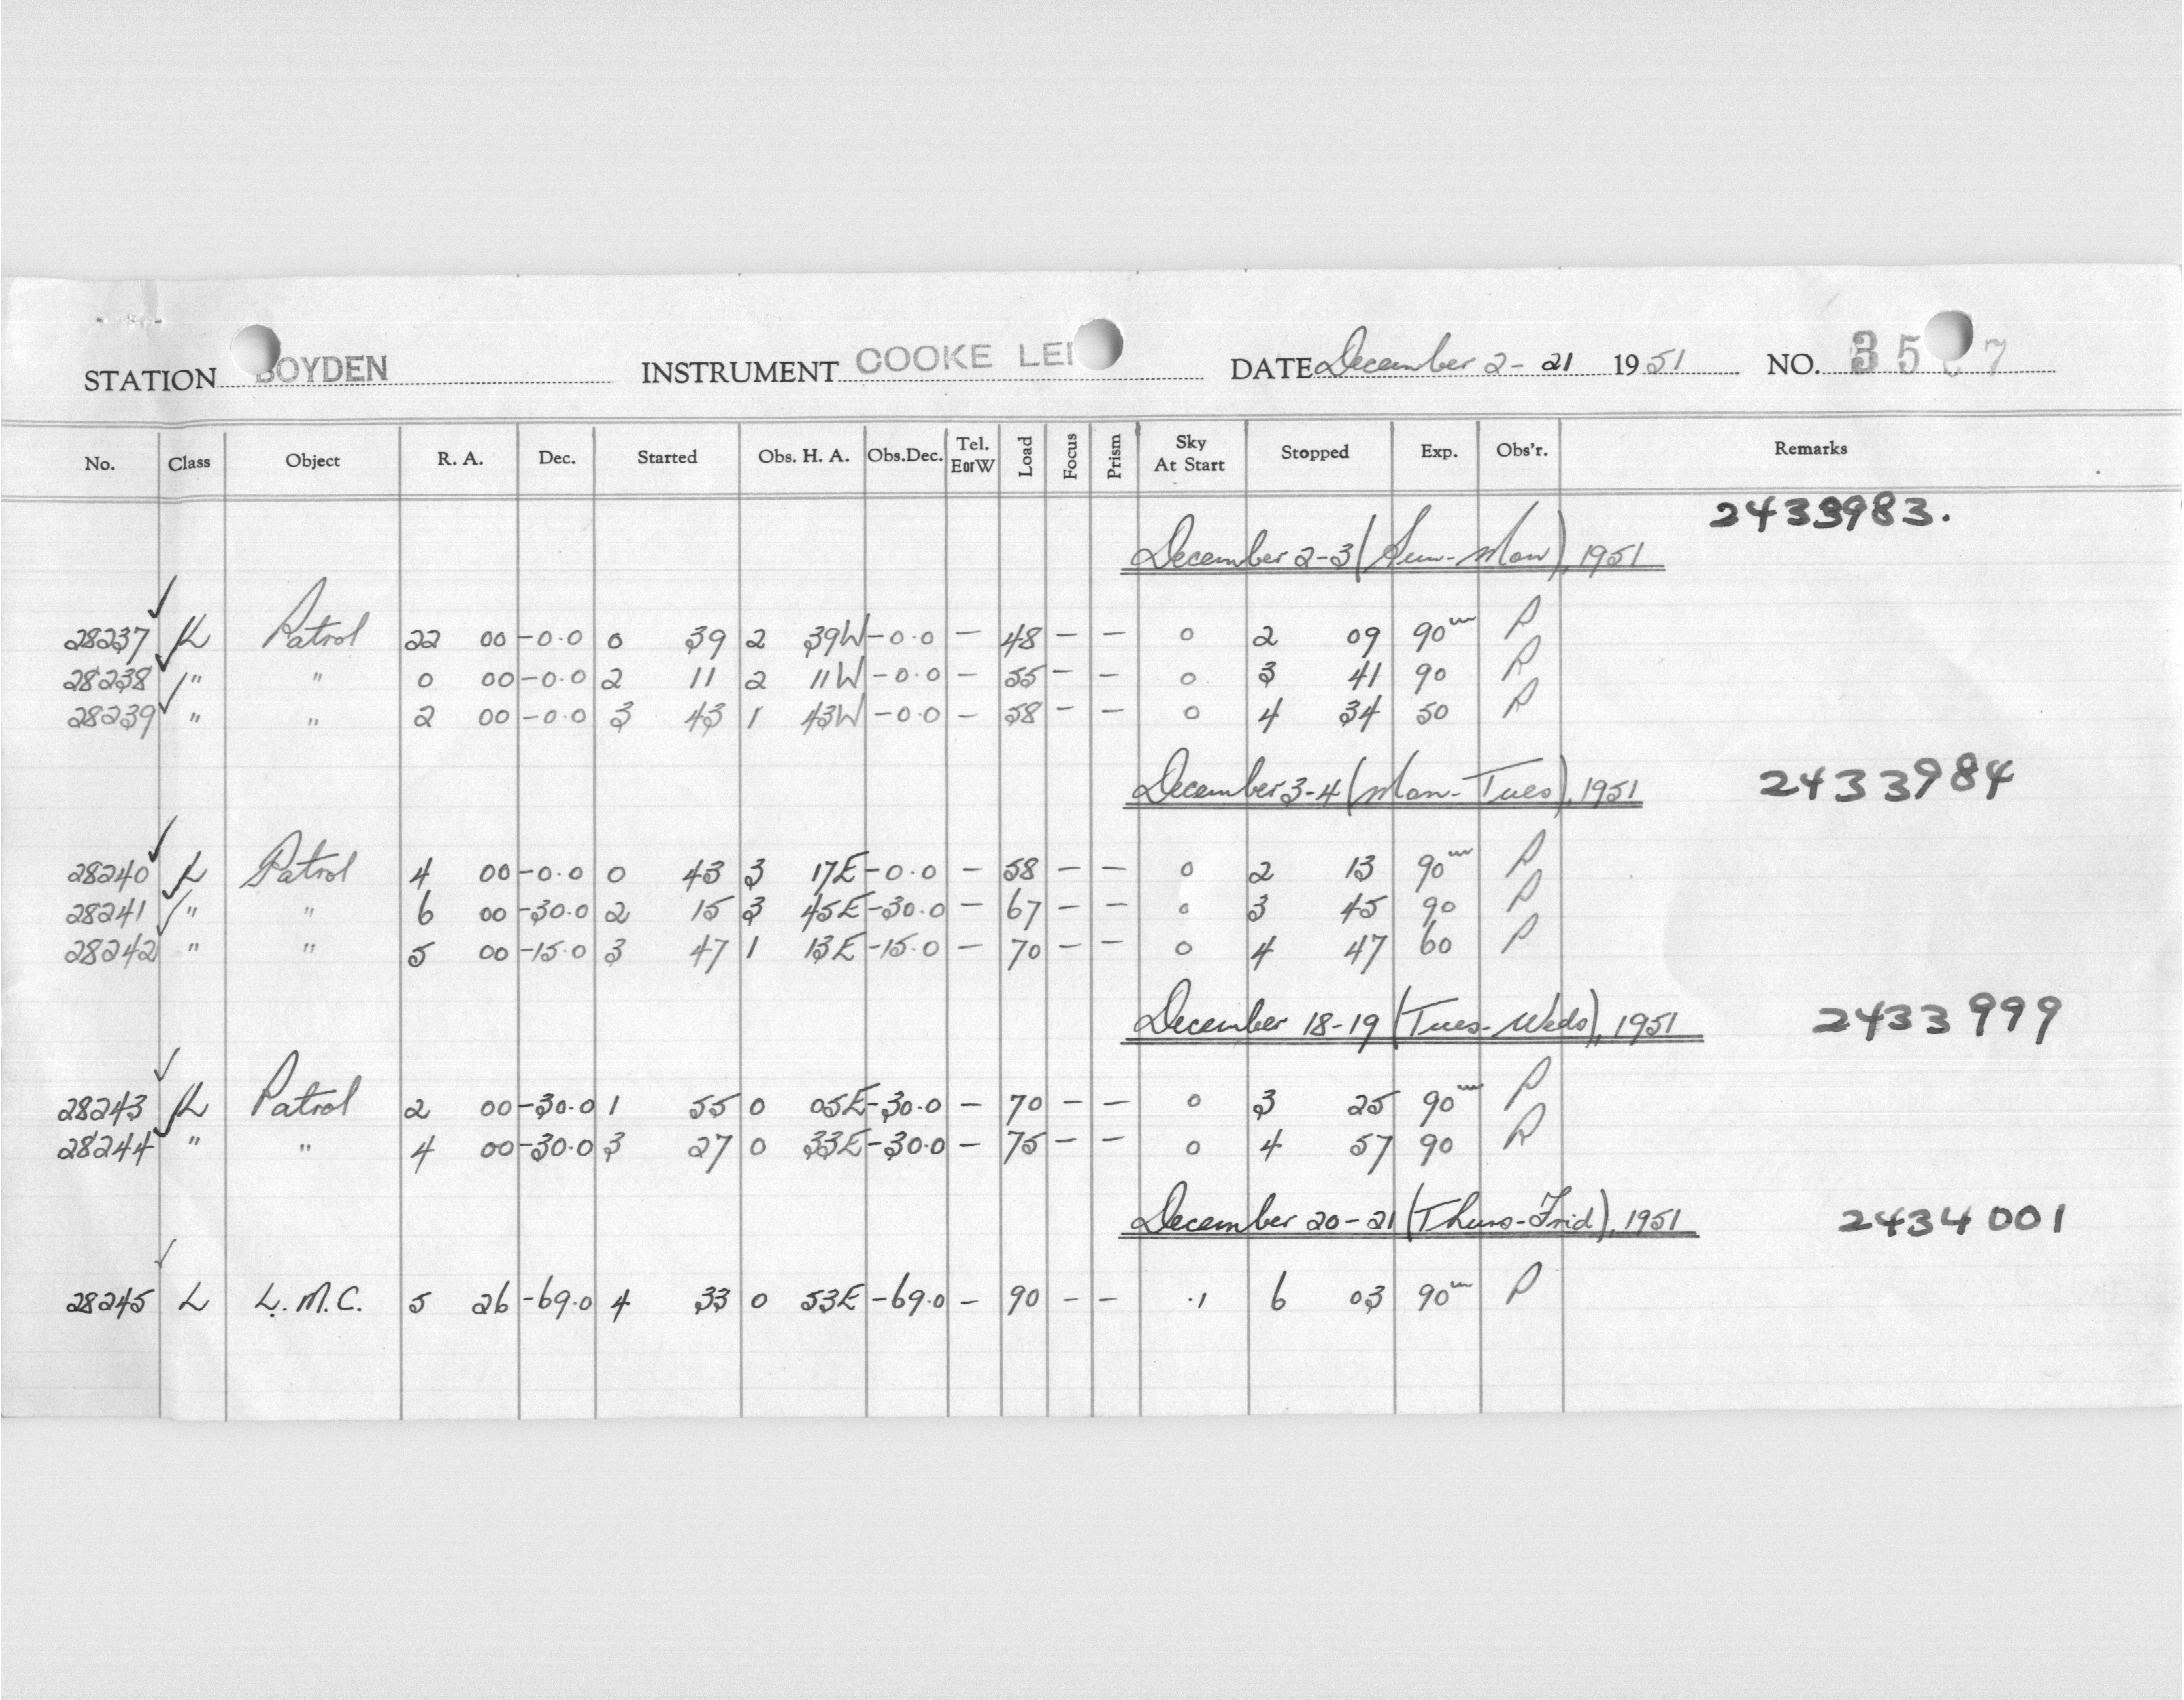 STATION BOYDEN INSTRUMENT COOKE LEN DATE December 2-21 1951 NO. 35 7
No. Class Object R. A. Dec. Started Obs. H. A. Obs.Dec. Tel. EorW Load Focus Prism Sky At Start Stopped Exp. Obs'r. Remarks
2433983.
December 2-3 (Sun-Mon), 1951
28237 L Patrol 22 00 -0.0 0 39 2 39W -0.0 — 48 — — 0 2 09 90m
28238 " " 0 00 -0.0 2 11 2 11W -0.0 — 55 — — 0 3 41 90
28239 " " 2 00 -0.0 3 43 1 43W -0.0 — 58 — — 0 4 34 50
December 3-4 (Mon-Tues), 1951 2433984
28240 L Patrol 4 00 -0.0 0 43 3 17E -0.0 — 58 — — 0 2 13 90m
28241 " " 6 00 -30.0 2 15 3 45E -30.0 — 67 — — 0 3 45 90
28242 " " 5 00 -15.0 3 47 1 13E -15.0 — 70 — — 0 4 47 60
December 18-19 (Tues-Weds), 1951 2433999
28243 L Patrol 2 00 -30.0 1 55 0 05E -30.0 — 70 — — 0 3 25 90m
28244 " " 4 00 -30.0 3 27 0 33E -30.0 — 75 — — 0 4 57 90
December 20-21 (Thurs-Frid), 1951 2434001
28245 L L.M.C. 5 26 -69.0 4 33 0 53E -69.0 — 90 — — .1 6 03 90m